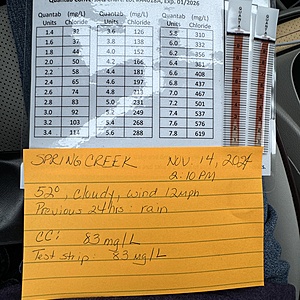 Quantab Conversion Chart: Exp. 01/2026
Quantab Units (mg/L) Chloride Quantab Units (mg/L) Chloride Quantab Units (mg/L) Chloride
1.4 32 3.6 126 5.8 310
1.6 37 3.8 138 6.0 332
1.8 44 4.0 152 6.2 356
2.0 50 4.2 166 6.4 381
2.2 58 4.4 181 6.6 408
2.4 65 4.6 197 6.8 437
2.6 74 4.8 213 7.0
2.8 83 5.0 231 7.2 501
3.0 92 5.2 249 7.4 537
3.2 103 5.4 268 7.6 576
3.4 114 5.6 288 7.8 619
SPRING CREEK NOV. 14, 2024
2:10 PM
52°, cloudy, wind 12mph
Previous 24hrs: rain
CC: 83 mg/L
Test strip: 83 mg/L